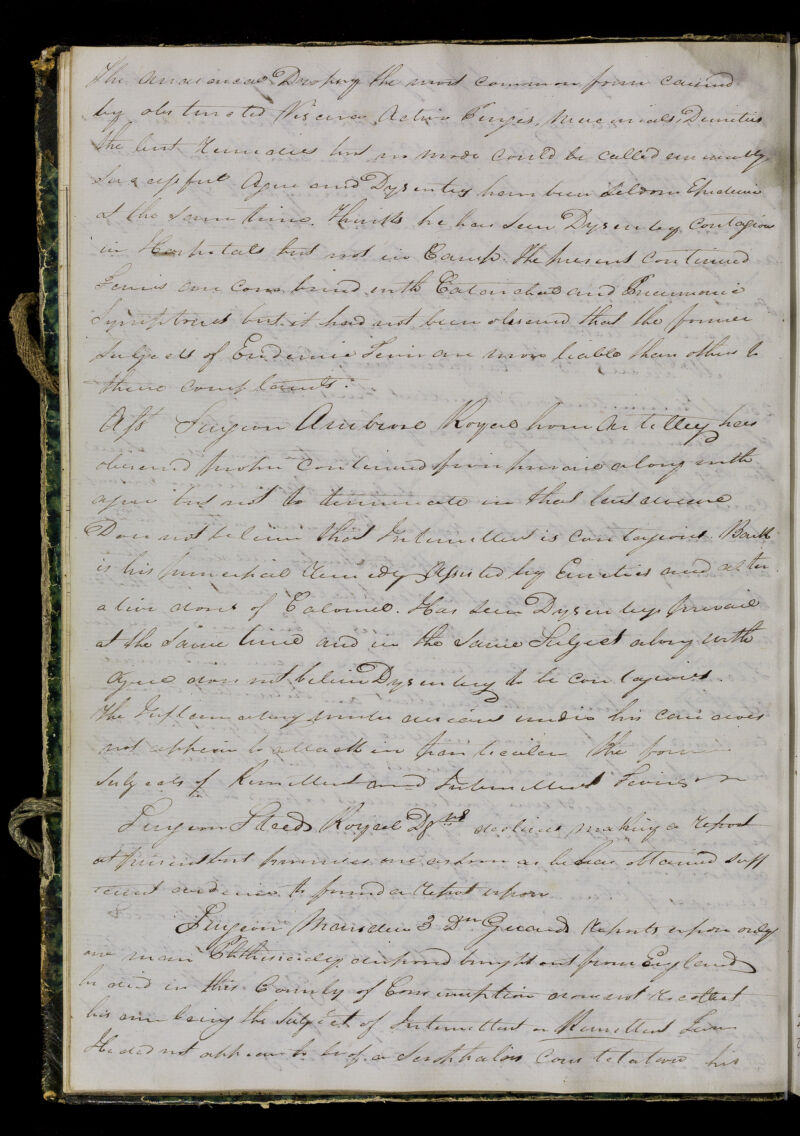 The Anasarca Dropsy the most common form caused
by obstructed Viscera Active Purges, Mercurials, Diuretics
the best Remedies but no mode could be called eminently
Successful Ague and Dysentery have been seldom Epidemic
at the same time. Thinks he has seen Dysentery Contagious
in Hospitals but not in Camp. The present Continued
Fevers are combined with Catarrhal and Pneumonic
Symptoms but it had not been observed that the former
subjects of Endemic Fever are more liable than others to
these complaints.
Asst Surgeon Ambrose Royal horse Artillery has
observed continued fever prevail along with
ague but not to terminate in that disease
Does not believe that Intermittent is contagious. Bark
is his principal remedy assisted by Emetics and alter
ative doses of Calomel. Has seen Dysentery prevail
at the same time and in the same Subject along with
Ague does not believe Dysentery to be contagious.
The Inflammatory under his care does
not appear to attack in particular the former
subjects of Remittent and Intermittent Fevers
Surgeon Steed Royal Dgns declines making a report
at present but promises one as soon as he has obtained suff
icient evidence to found a report upon
Surgeon 3 Dn Guards reports upon only
one man Phthisically disposed brought out from England
he died in this Country of Consumption does not recollect
his ever being the subject of Intermittent or Remittent Fever
He did not appear to be of a constitution his